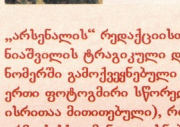 „არსენალის“ რედაქციისთ
ნიაშვილის ტრაგიკული დ
ნომერში გამოქვეყნებული
ერთი ფოტოგმირი სწორედ
ისრითაა მითითებული), რო